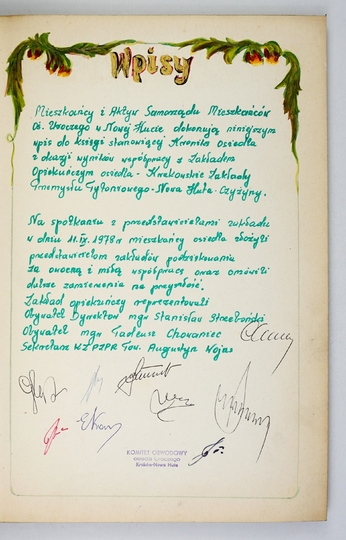 Wpisy
Mieszkańcy i Aktyw Samorządu Mieszkańców
Oś. Uroczego w Nowej Hucie dokonują niniejszym
wpis do księgi stanowiącej Kronikę osiedla
z okazji wyników współpracy z Zakładem
Opiekuńczym osiedla - Krakowskie Zakłady
Przemysłu Tytoniowego - Nowa Huta - Czyżyny.
Na spotkaniu z przedstawicielami zakładu
w dniu 11.IX.1978r mieszkańcy osiedla złożyli
przedstawicielom zakładów podziękowanie
za owocną i miłą współpracę oraz omówili
dalsze zamierzenia na przyszłość.
Zakład opiekuńczy reprezentowali
Obywatel Dyrektor mgr Stanisław
Obywatel mgr Tadeusz Chowaniec
Sekretarz KZ PZPR Tow. Augustyn Wojas
KOMITET OBWODOWY
Kraków-Nowa Huta